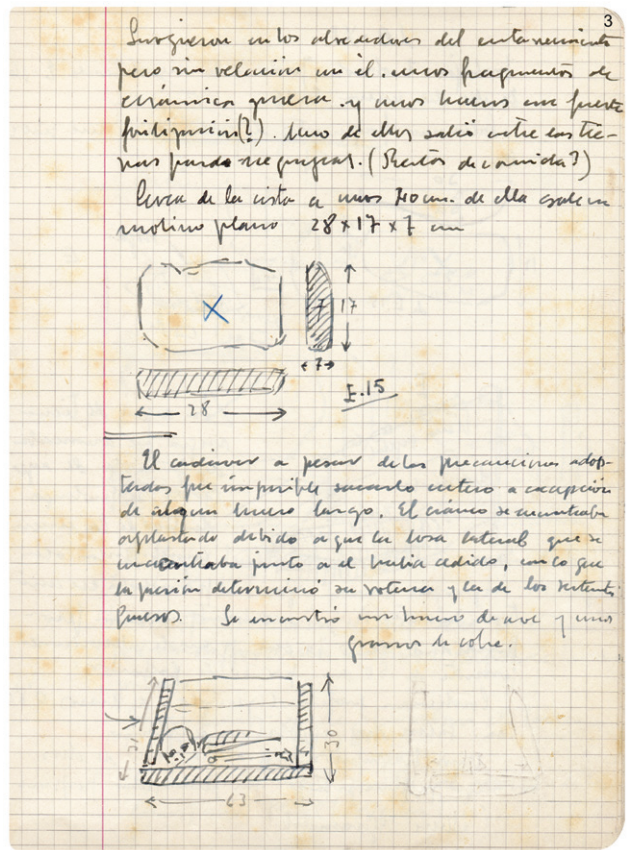 3
Surgieron en los alrededores del enterramiento
pero sin relación con él. unos fragmentos de
cerámica grosera y unos huesos con fuerte
fosilización(?). Uno de ellos salió entre las tie-
rras pardo negruzcas. (Restos de comida?)
Cerca de la cista a unos 40 cm. de ella sale un
molino plano 28 x 17 x 7 cm
7
17
7
28
E.15
El cadáver a pesar de las precauciones adop-
tadas fue imposible sacarlo entero a excepción
de algun hueso largo. El cráneo se encontraba
aplastado debido a que la losa lateral que se
encontraba junto a el había cedido, con lo que
la presión determinó su rotura y la de los
huesos. Se encontró un hueso de ave y unos
granos de cobre.
31
30
63